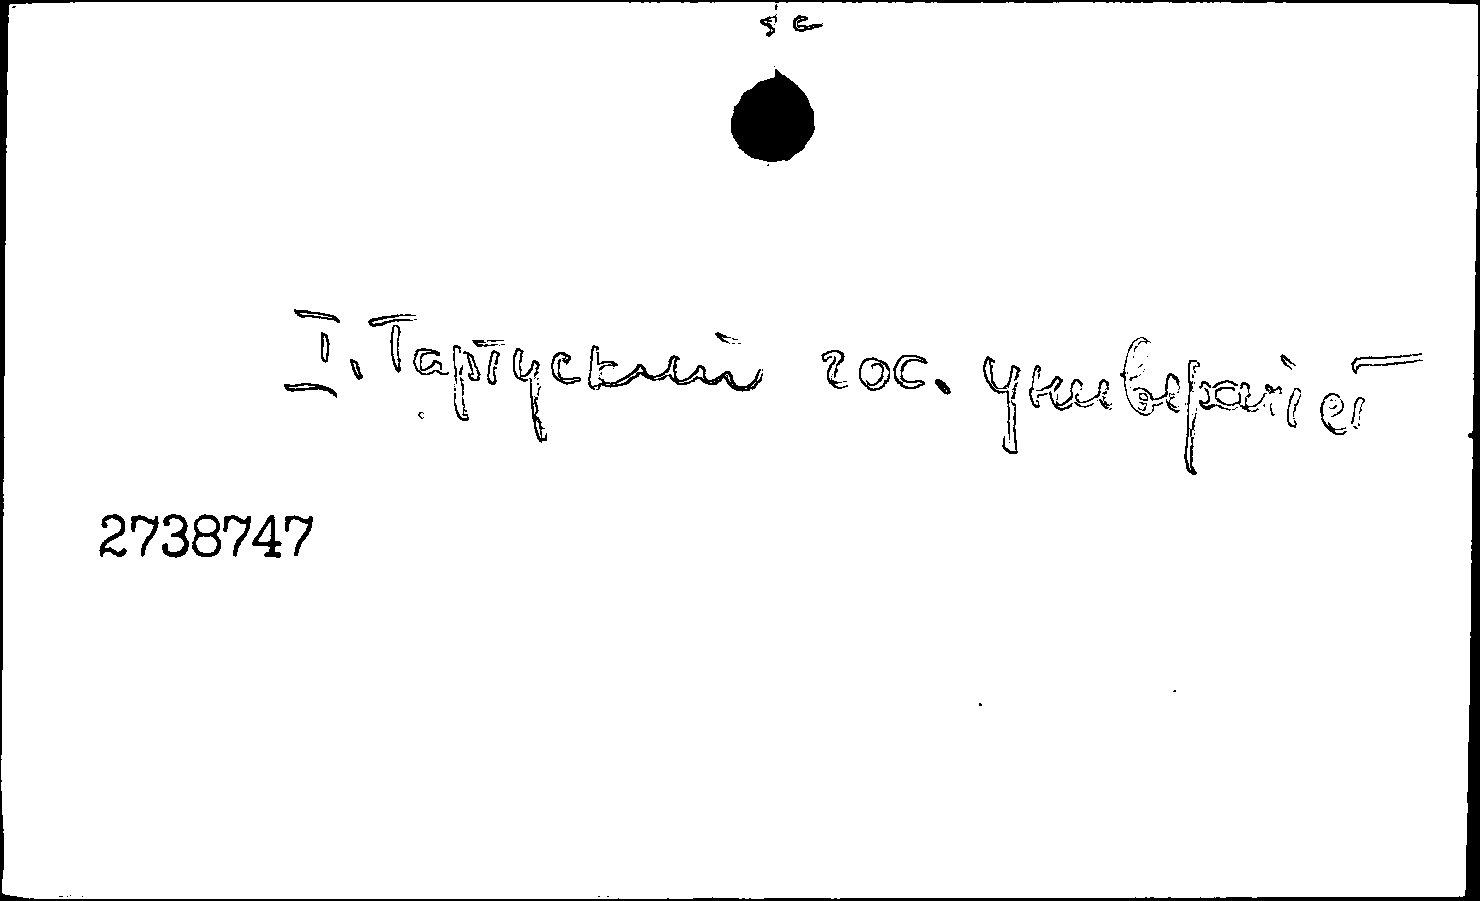 I. Тартуский гос. университет
2738747